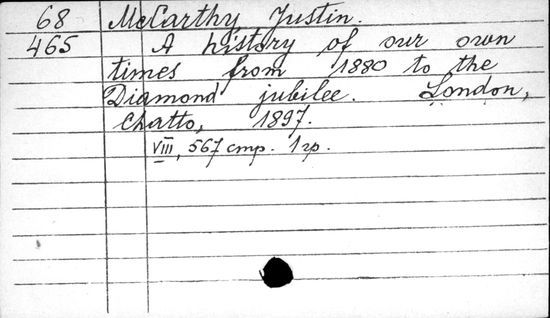 68 McCarthy Justin.
465 A history of our own
times from 1880 to the
Diamond jubilee. London,
Chatto, 1897.
VIII, 567 cmp. 1 гр.